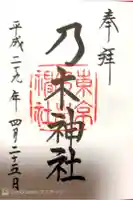 奉拝
乃木神社
平成二十九年四月二十五日